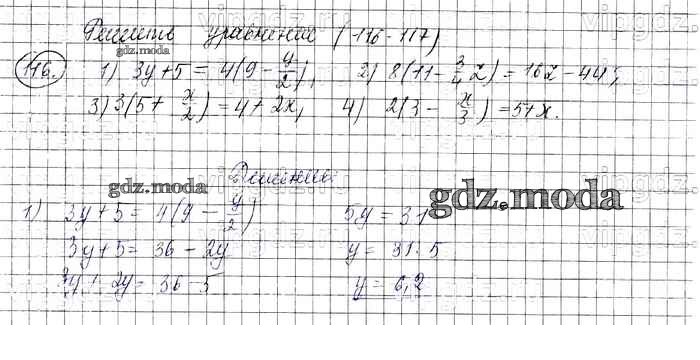 Решить уравнения (116-117)
gdz.moda
116. 1) 3y+5 = 4(9 - y/2); 2) 8(11 - 3/4 z) = 16z - 44;
3) 3(5 + x/2) = 4 + 2x, 4) 2(3 - x/3) = 5+x.
Решение:
gdz.moda
gdz.moda
1) 3y + 5 = 4(9 - y/2) 5y = 31
3y + 5 = 36 - 2y y = 31 : 5
3y + 2y = 36 - 5 y = 6,2